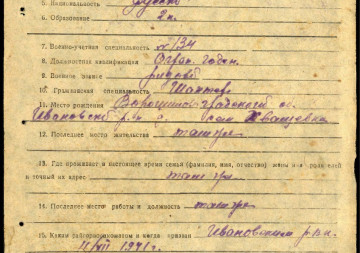 5. Национальность
6. Образование 2 кл.
7. Военно-учетная специальность № 134
8. Должностная квалификация Огран. годен.
9. Военное звание рядовой
10. Гражданская специальность Шахтер
11. Место рождения Ворошиловградской об.
Ивановский р-н село
12. Последнее место жительства там же
13. Где проживает в настоящее время семья (фамилия, имя, отчество) жены или родителей
и точный их адрес там же
14. Последнее место работы и должность там же
15. Каким райгорвоенкоматом и когда призван Ивановским рвк.
1941 г.